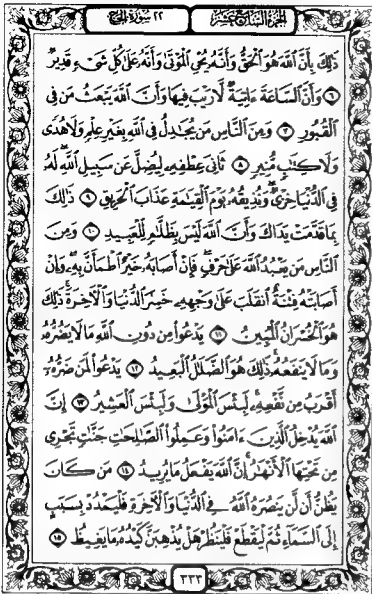 ٢٢ سورة الحج
الجزء السابع عشر
ذَٰلِكَ بِأَنَّ ٱللَّهَ هُوَ ٱلْحَقُّ وَأَنَّهُۥ يُحْىِ ٱلْمَوْتَىٰ وَأَنَّهُۥ عَلَىٰ كُلِّ شَىْءٍ قَدِيرٌ
٦ وَأَنَّ ٱلسَّاعَةَ ءَاتِيَةٌ لَّا رَيْبَ فِيهَا وَأَنَّ ٱللَّهَ يَبْعَثُ مَن فِى
ٱلْقُبُورِ ٧ وَمِنَ ٱلنَّاسِ مَن يُجَٰدِلُ فِى ٱللَّهِ بِغَيْرِ عِلْمٍ وَلَا هُدًى
وَلَا كِتَٰبٍ مُّنِيرٍ ٨ ثَانِىَ عِطْفِهِۦ لِيُضِلَّ عَن سَبِيلِ ٱللَّهِ لَهُۥ
فِى ٱلدُّنْيَا خِزْىٌ وَنُذِيقُهُۥ يَوْمَ ٱلْقِيَٰمَةِ عَذَابَ ٱلْحَرِيقِ ٩ ذَٰلِكَ
بِمَا قَدَّمَتْ يَدَاكَ وَأَنَّ ٱللَّهَ لَيْسَ بِظَلَّٰمٍ لِّلْعَبِيدِ ١٠ وَمِنَ
ٱلنَّاسِ مَن يَعْبُدُ ٱللَّهَ عَلَىٰ حَرْفٍ فَإِنْ أَصَابَهُۥ خَيْرٌ ٱطْمَأَنَّ بِهِۦ وَإِنْ
أَصَابَتْهُ فِتْنَةٌ ٱنقَلَبَ عَلَىٰ وَجْهِهِۦ خَسِرَ ٱلدُّنْيَا وَٱلْءَاخِرَةَ ذَٰلِكَ
هُوَ ٱلْخُسْرَانُ ٱلْمُبِينُ ١١ يَدْعُوا۟ مِن دُونِ ٱللَّهِ مَا لَا يَضُرُّهُۥ
وَمَا لَا يَنفَعُهُۥ ذَٰلِكَ هُوَ ٱلضَّلَٰلُ ٱلْبَعِيدُ ١٢ يَدْعُوا۟ لَمَن ضَرُّهُۥٓ
أَقْرَبُ مِن نَّفْعِهِۦ لَبِئْسَ ٱلْمَوْلَىٰ وَلَبِئْسَ ٱلْعَشِيرُ ١٣ إِنَّ
ٱللَّهَ يُدْخِلُ ٱلَّذِينَ ءَامَنُوا۟ وَعَمِلُوا۟ ٱلصَّٰلِحَٰتِ جَنَّٰتٍ تَجْرِى
مِن تَحْتِهَا ٱلْأَنْهَٰرُ إِنَّ ٱللَّهَ يَفْعَلُ مَا يُرِيدُ ١٤ مَن كَانَ
يَظُنُّ أَن لَّن يَنصُرَهُ ٱللَّهُ فِى ٱلدُّنْيَا وَٱلْءَاخِرَةِ فَلْيَمْدُدْ بِسَبَبٍ
إِلَى ٱلسَّمَآءِ ثُمَّ لْيَقْطَعْ فَلْيَنظُرْ هَلْ يُذْهِبَنَّ كَيْدُهُۥ مَا يَغِيظُ ١٥
٣٣٣